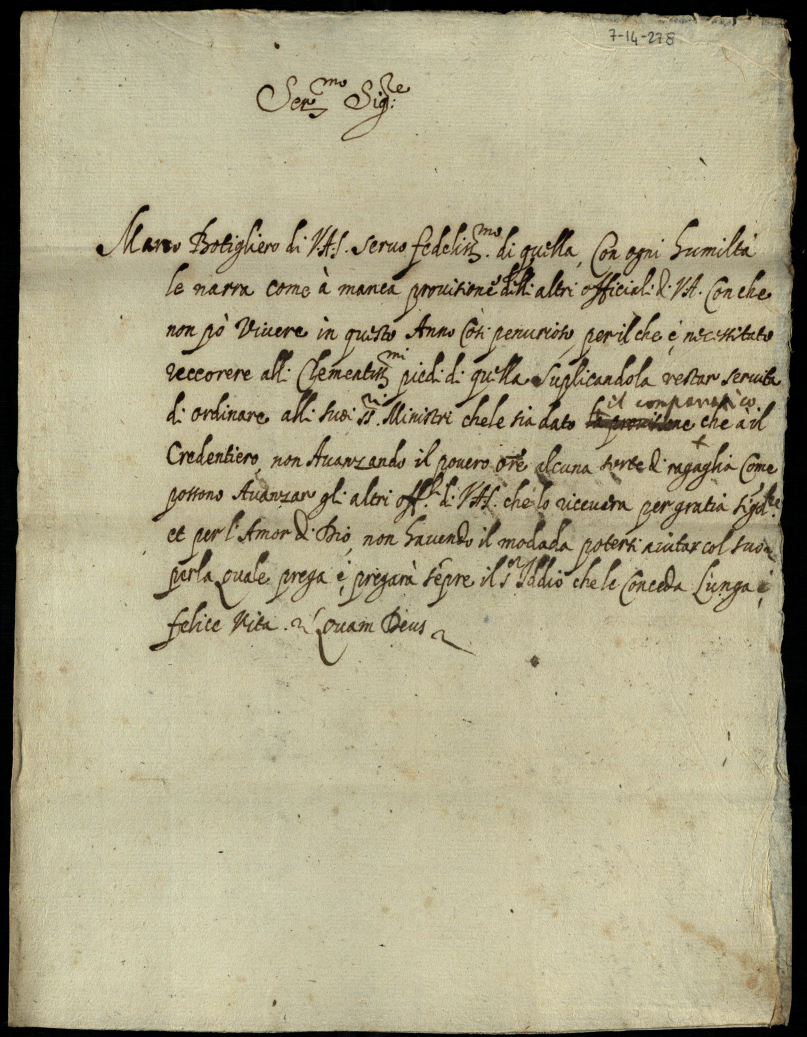 7-14-278
Ser.mo Sig:re
Marco Botigliero di V.A.S. servo fedeliss.mo di quella, Con ogni humiltà
le narra come à manca provisione degli altri officiali di V.A. Con che
non pò Vivere in questo Anno Così penurioso, per il che è necessitato
reccorere alli Clementiss.mi piedi di quella Suplicandola restar servita
di ordinare alli suoi ss.ri Ministri che le sia dato la provisione il comparatico che à il
Credentiero, non Avanzando il povero ore alcuna sorte di ragaglia Come
possono Avanzar gli altri off.li di V.A.S. che lo riceverà per gratia
et per l'Amor di Dio, non havendo il modo da potersi aiutar col suo
per la Quale prega è pregarà sepre il s.r Iddio che le Conceda Lunga è
felice Vita. Quam Deus